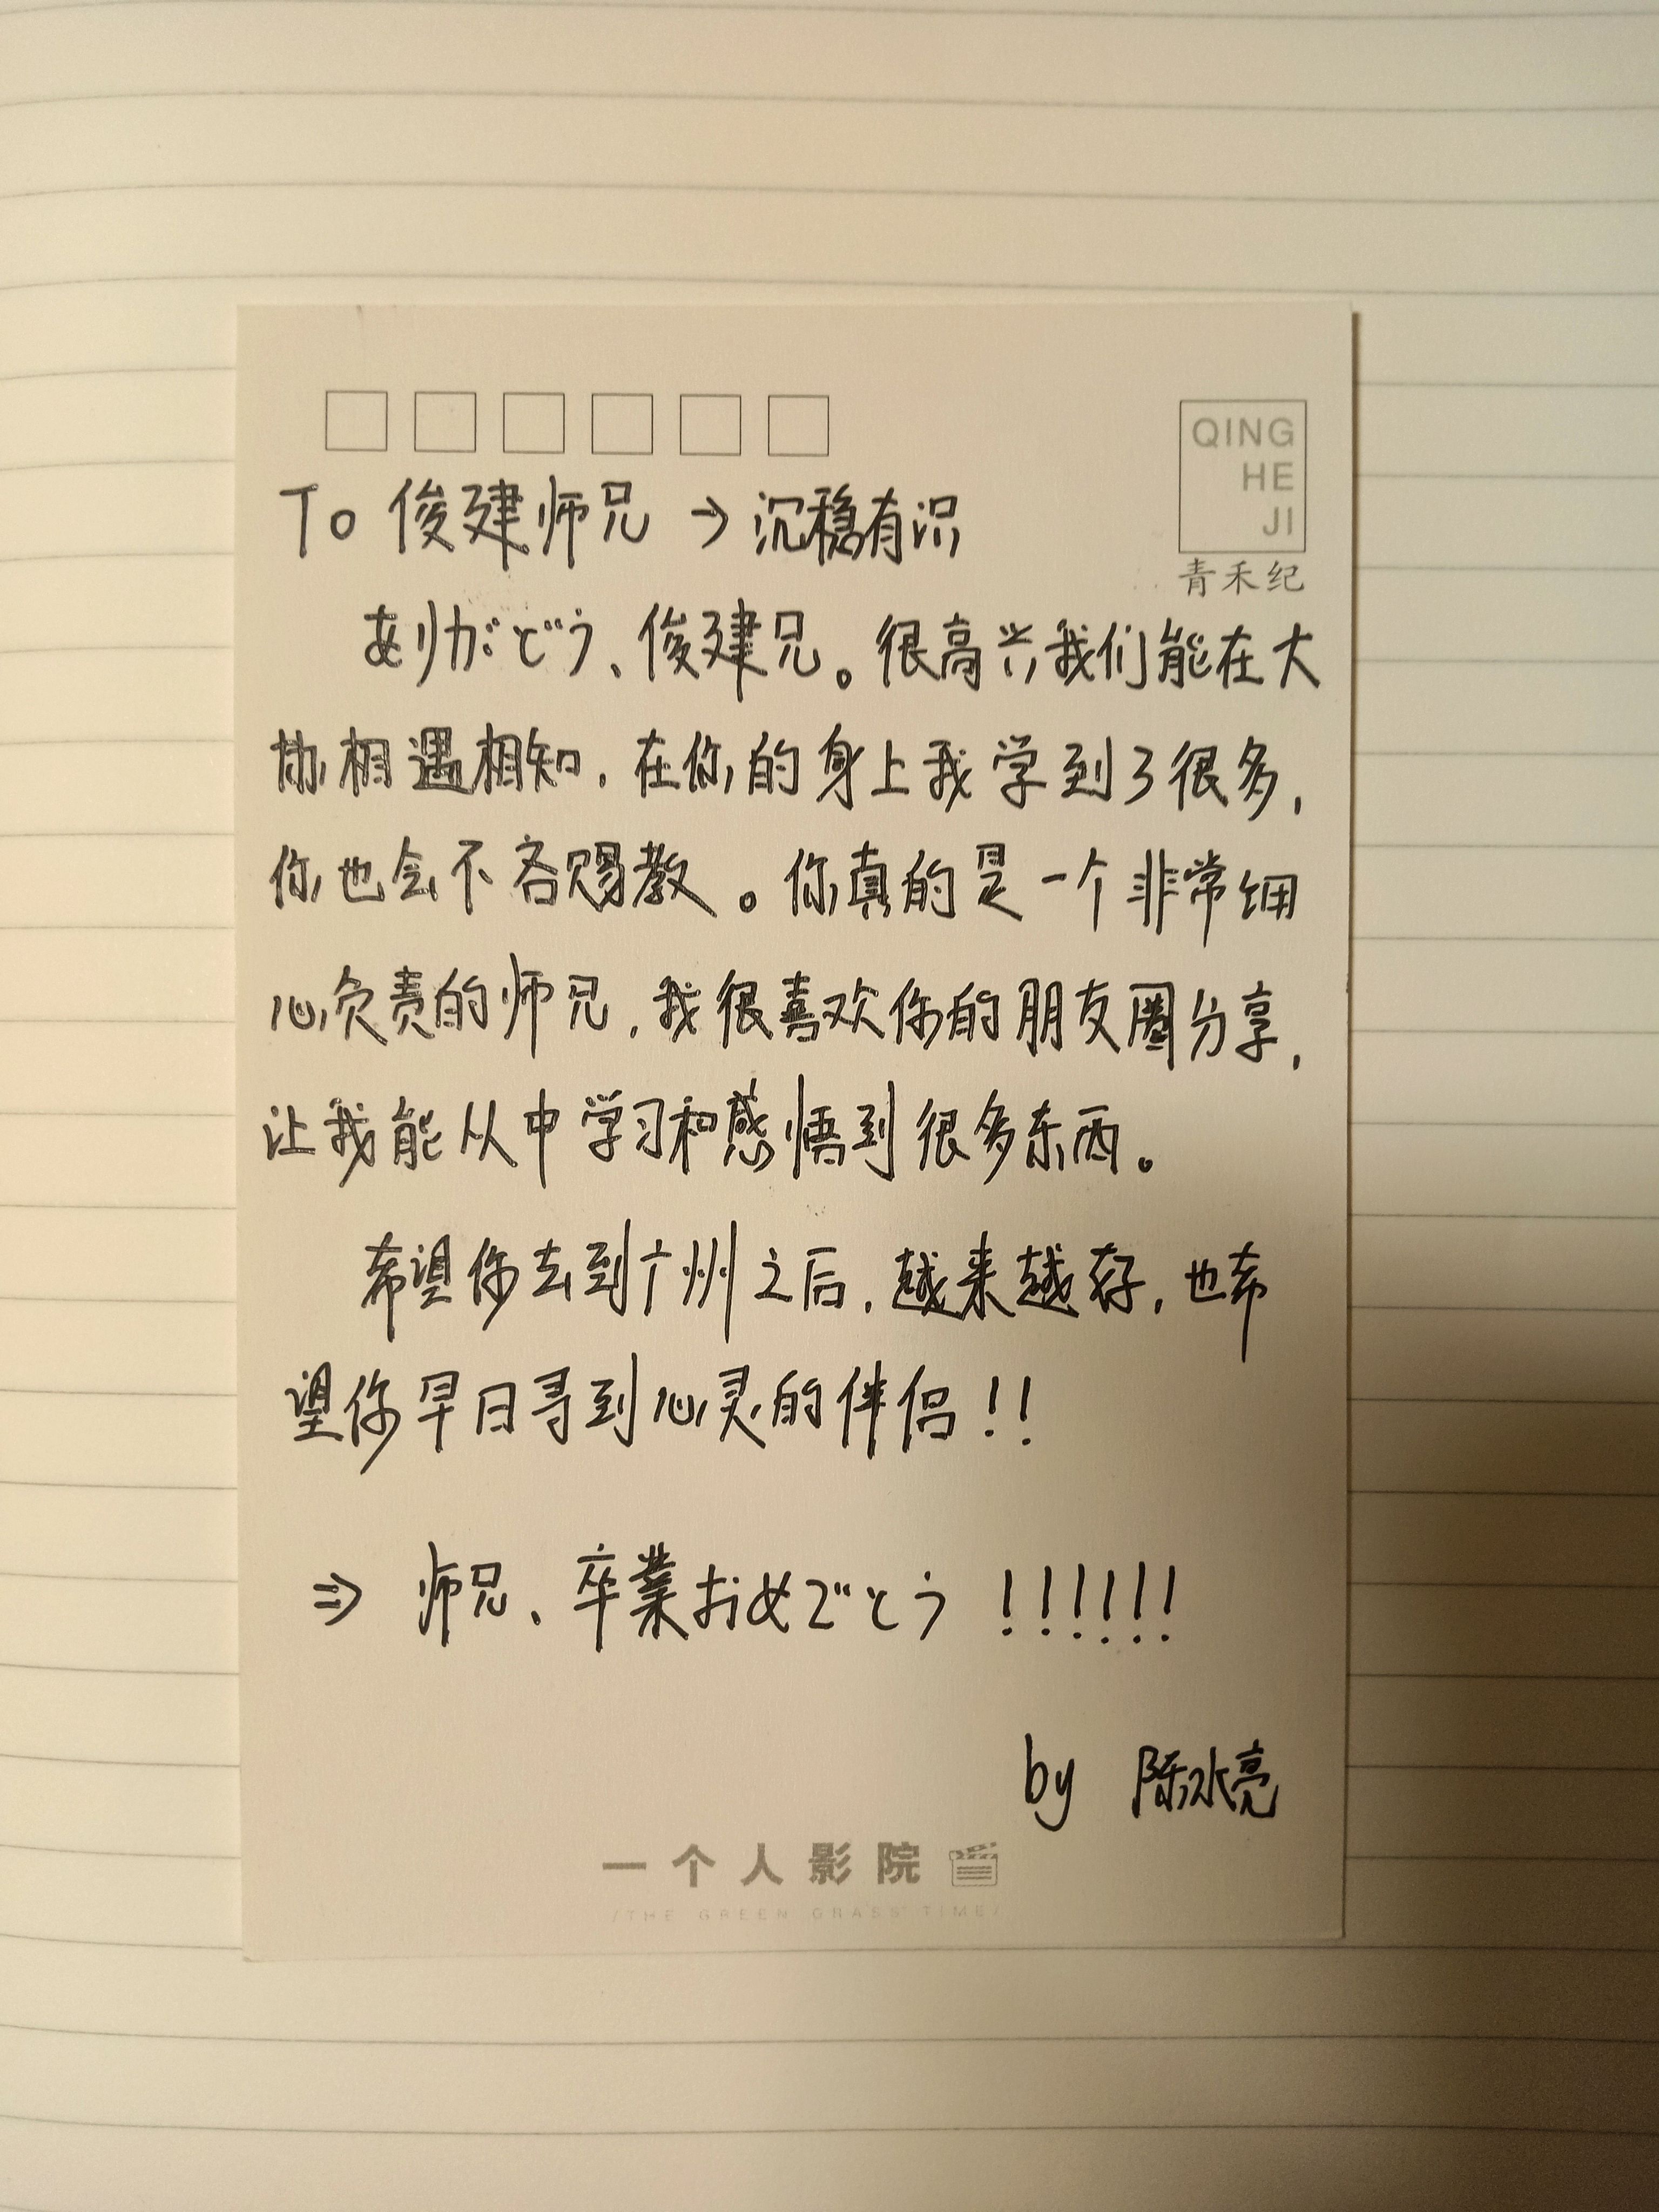 QING
HE
JI
青禾纪
To 俊建师兄 → 沉稳有识
ありがどう、俊建兄。很高兴我们能在大
协相遇相知，在你的身上我学到了很多，
你也会不吝赐教。你真的是一个非常细
心负责的师兄，我很喜欢你的朋友圈分享，
让我能从中学习和感悟到很多东西。
希望你去到广州之后，越来越好，也希
望你早日寻到心灵的伴侣!!
⇒ 师兄、卒業おめでとう !!!!!!
by 陈冰亮
一个人影院
/THE GREEN GRASS TIME/